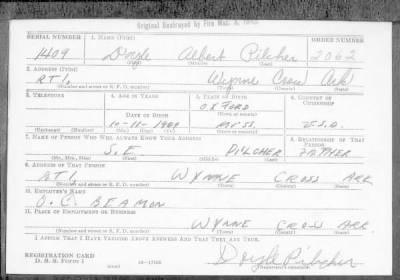 Original Destroyed by Fire Mar.
SERIAL NUMBER 1. NAME (Print) ORDER NUMBER
1409 Doyle Albert Pilcher 2062
(First) (Middle) (Last)
2. ADDRESS (Print)
RT 1. Wynne Cross Ark
(Number and street or R. F. D. number) (Town) (County) (State)
3. TELEPHONE 4. AGE IN YEARS 5. PLACE OF BIRTH 6. COUNTRY OF CITIZENSHIP
OXFORD
DATE OF BIRTH (Town or county)
10-11- U.S.A.
(Exchange) (Number) (Mo.) (Day) (Yr.) (State or country)
7. NAME OF PERSON WHO WILL ALWAYS KNOW YOUR ADDRESS 8. RELATIONSHIP OF THAT PERSON
S. E. PILCHER FATHER
(Mr., Mrs., Miss) (First) (Middle) (Last)
9. ADDRESS OF THAT PERSON
RT 1. WYNNE CROSS ARK
(Number and street or R. F. D. number) (Town) (County) (State)
10. EMPLOYER'S NAME
O. C. BEAMON
11. PLACE OF EMPLOYMENT OR BUSINESS
WYNNE CROSS ARK
(Number and street or R. F. D. number) (Town) (County) (State)
I AFFIRM THAT I HAVE VERIFIED ABOVE ANSWERS AND THAT THEY ARE TRUE.
REGISTRATION CARD
D. S. S. Form 1 (over) 16-17105 Doyle Pilcher
(Registrant's signature)